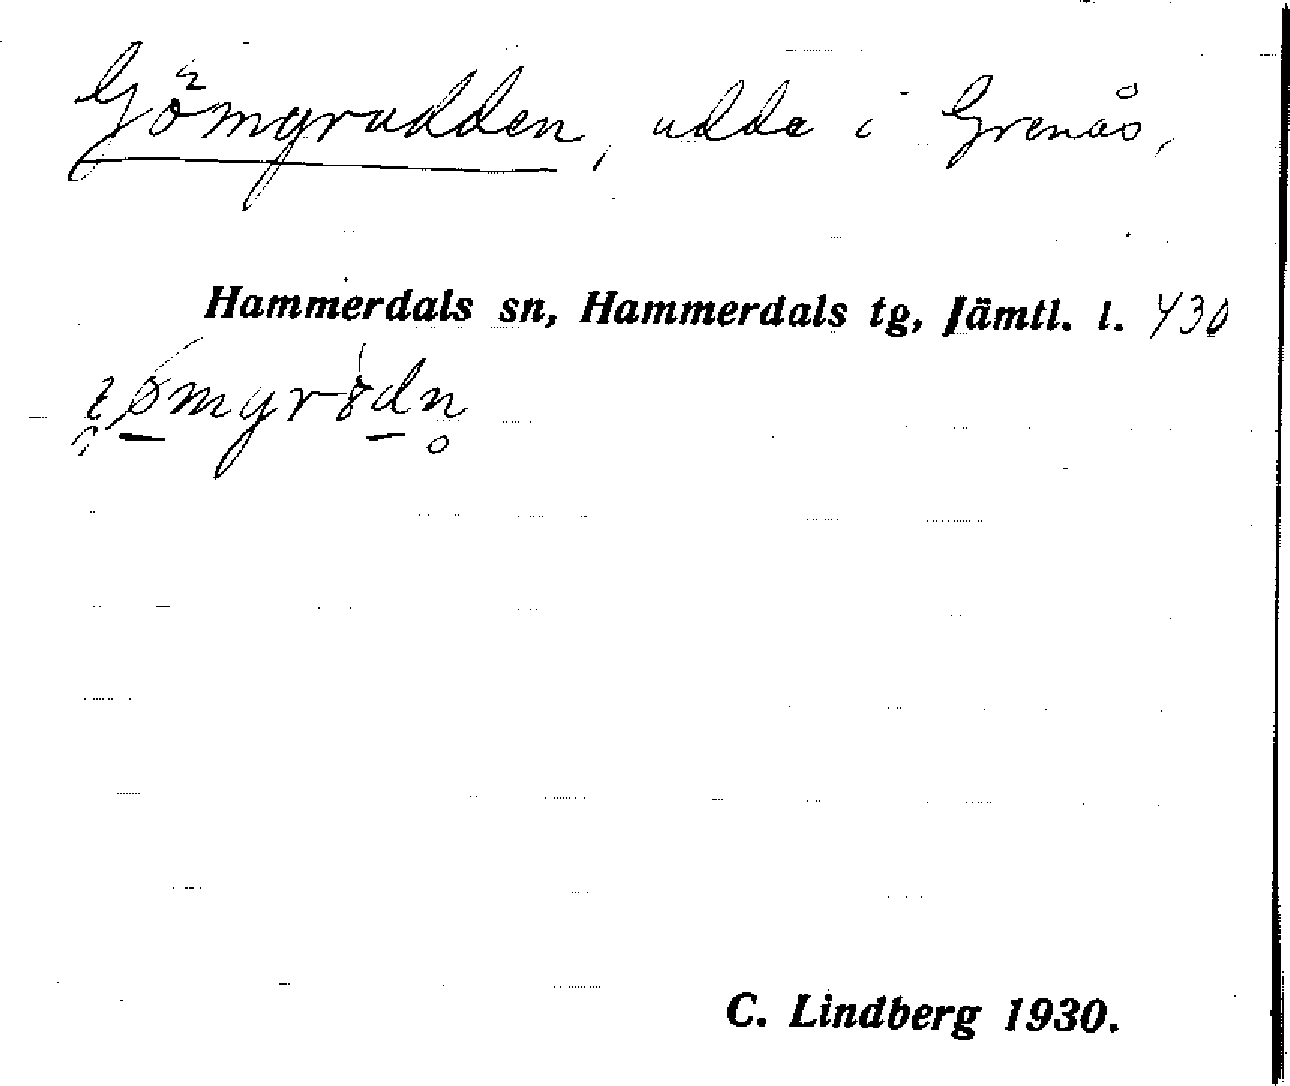 Gömgrudden, udde i Grenås,
Hammerdals sn, Hammerdals tg, Jämtl. l. 430
C. Lindberg 1930.